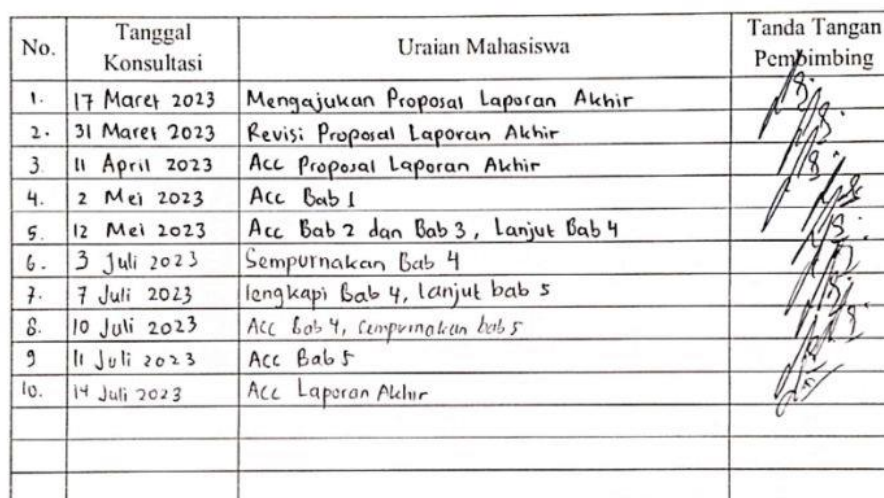 No. Tanggal Konsultasi Uraian Mahasiswa Tanda Tangan Pembimbing
1. 17 Maret 2023 Mengajukan Proposal Laporan Akhir
2. 31 Maret 2023 Revisi Proposal Laporan Akhir
3. 11 April 2023 Acc Proposal Laporan Akhir
4. 2 Mei 2023 Acc Bab 1
5. 12 Mei 2023 Acc Bab 2 dan Bab 3, Lanjut Bab 4
6. 3 Juli 2023 Sempurnakan Bab 4
7. 7 Juli 2023 lengkapi Bab 4, lanjut bab 5
8. 10 Juli 2023 Acc Bab 4, Sempurnakan bab 5
9 11 Juli 2023 Acc Bab 5
10. 14 Juli 2023 Acc Laporan Akhir